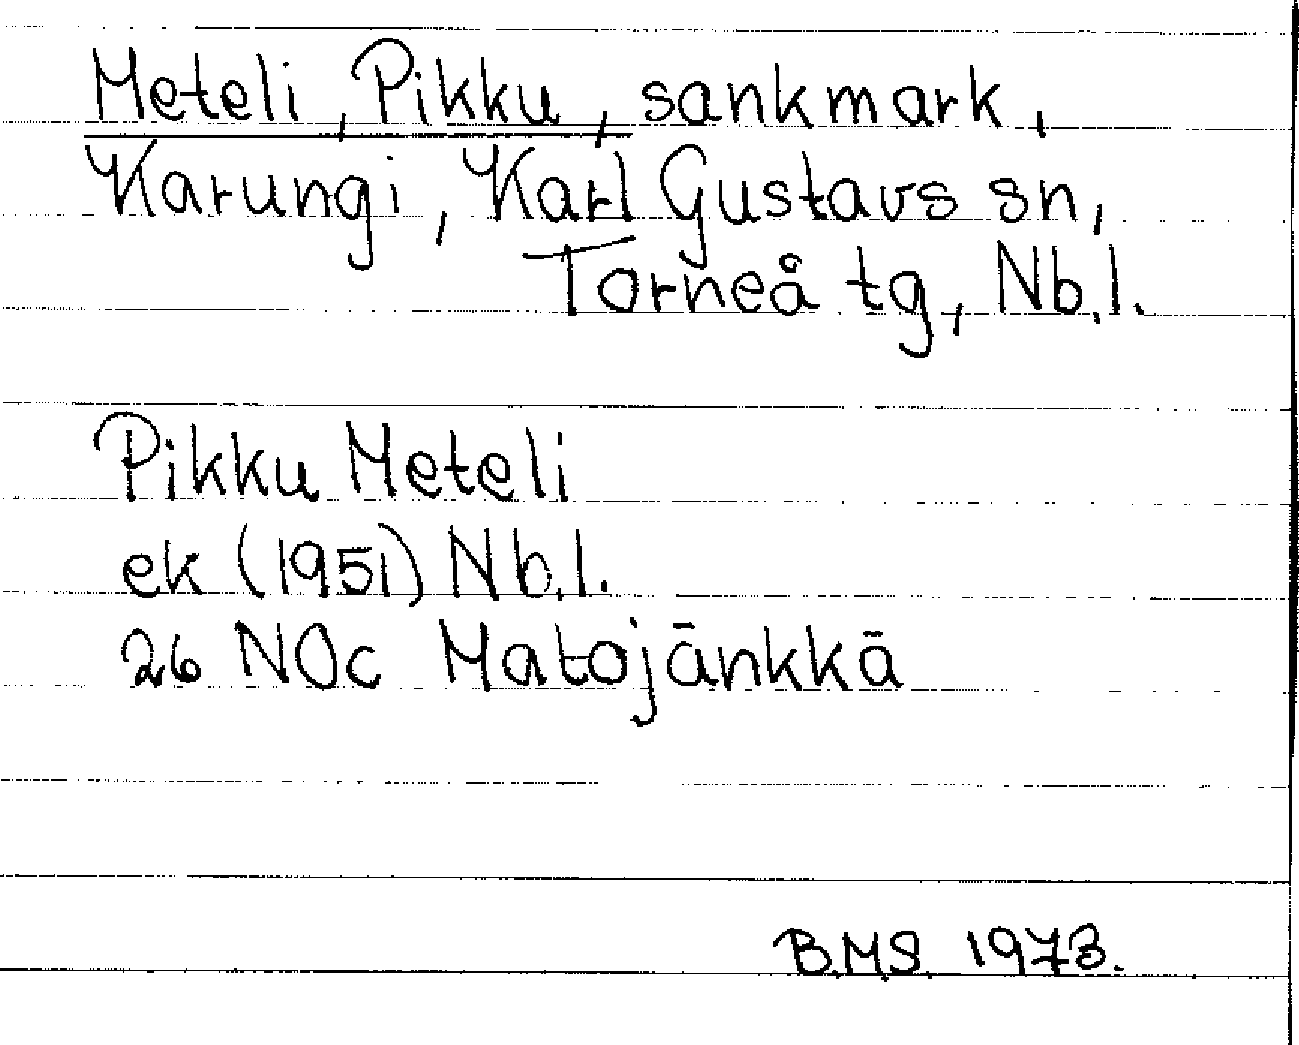 Meteli, Pikku, sankmark,
Karungi, Karl Gustavs sn,
Torneå tg, Nb.l.
Pikku Meteli
ek (1951) Nb.l.
26 NOc Matojänkkä
B.M.S. 1973.